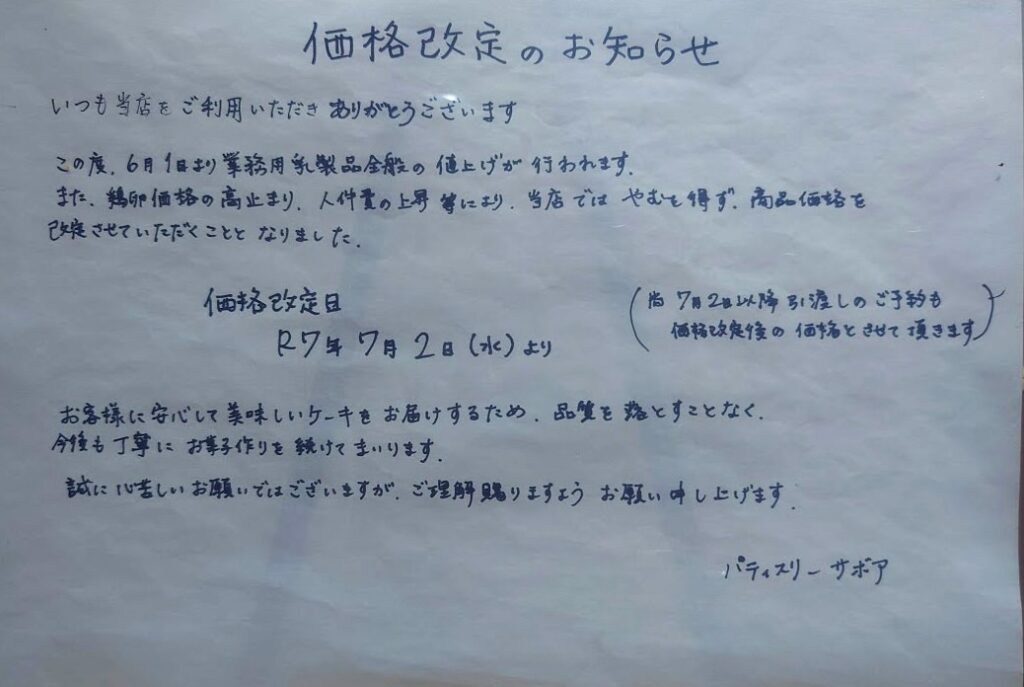 価格改定のお知らせ
いつも当店をご利用いただきありがとうございます
この度、6月1日より業務用乳製品全般の値上げが行われます。
また、鶏卵価格の高止まり、人件費の上昇等により、当店ではやむを得ず、商品価格を
改定させていただくこととなりました。
価格改定日
R7年7月2日(水)より
(尚7月2日以降引渡しのご予約も
価格改定後の価格とさせて頂きます)
お客様に安心して美味しいケーキをお届けするため、品質を落とすことなく、
今後も丁寧にお菓子作りを続けてまいります。
誠に心苦しいお願いではございますが、ご理解賜りますようお願い申し上げます。
パティスリーサボア